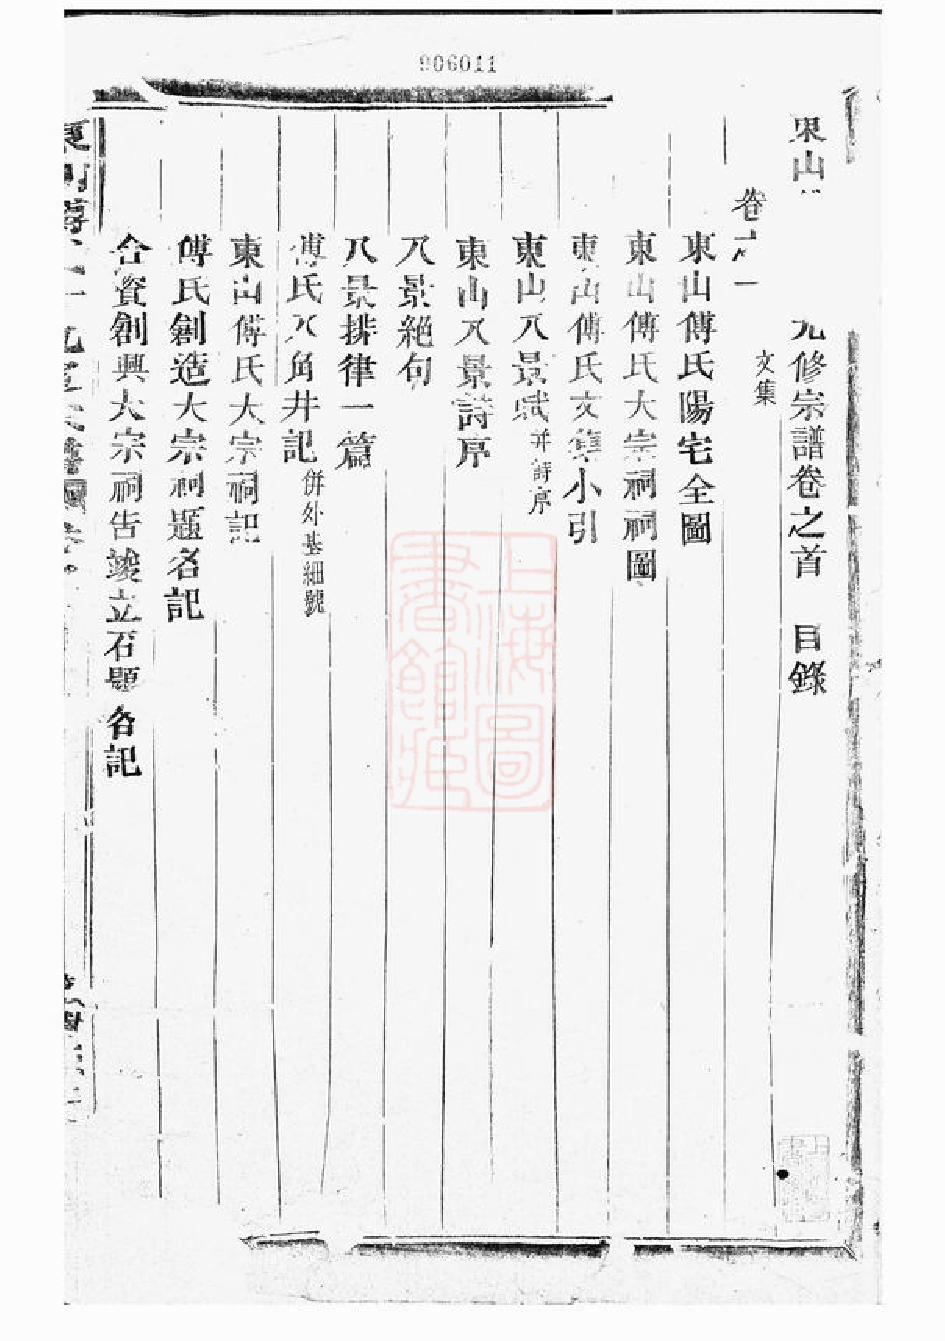 906011
東山 九修宗譜卷之首 目錄
卷之一 文集
東山傅氏陽宅全圖
東山傅氏大宗祠祠圖
東山傅氏文集小引
東山八景賦 并詩序
東山八景詩序
八景絕句
八景排律一篇
傅氏八角井記 併外基細號
東山傅氏大宗祠記
傅氏創造大宗祠題名記
合資創興大宗祠告竣立石題名記
上海圖書館藏